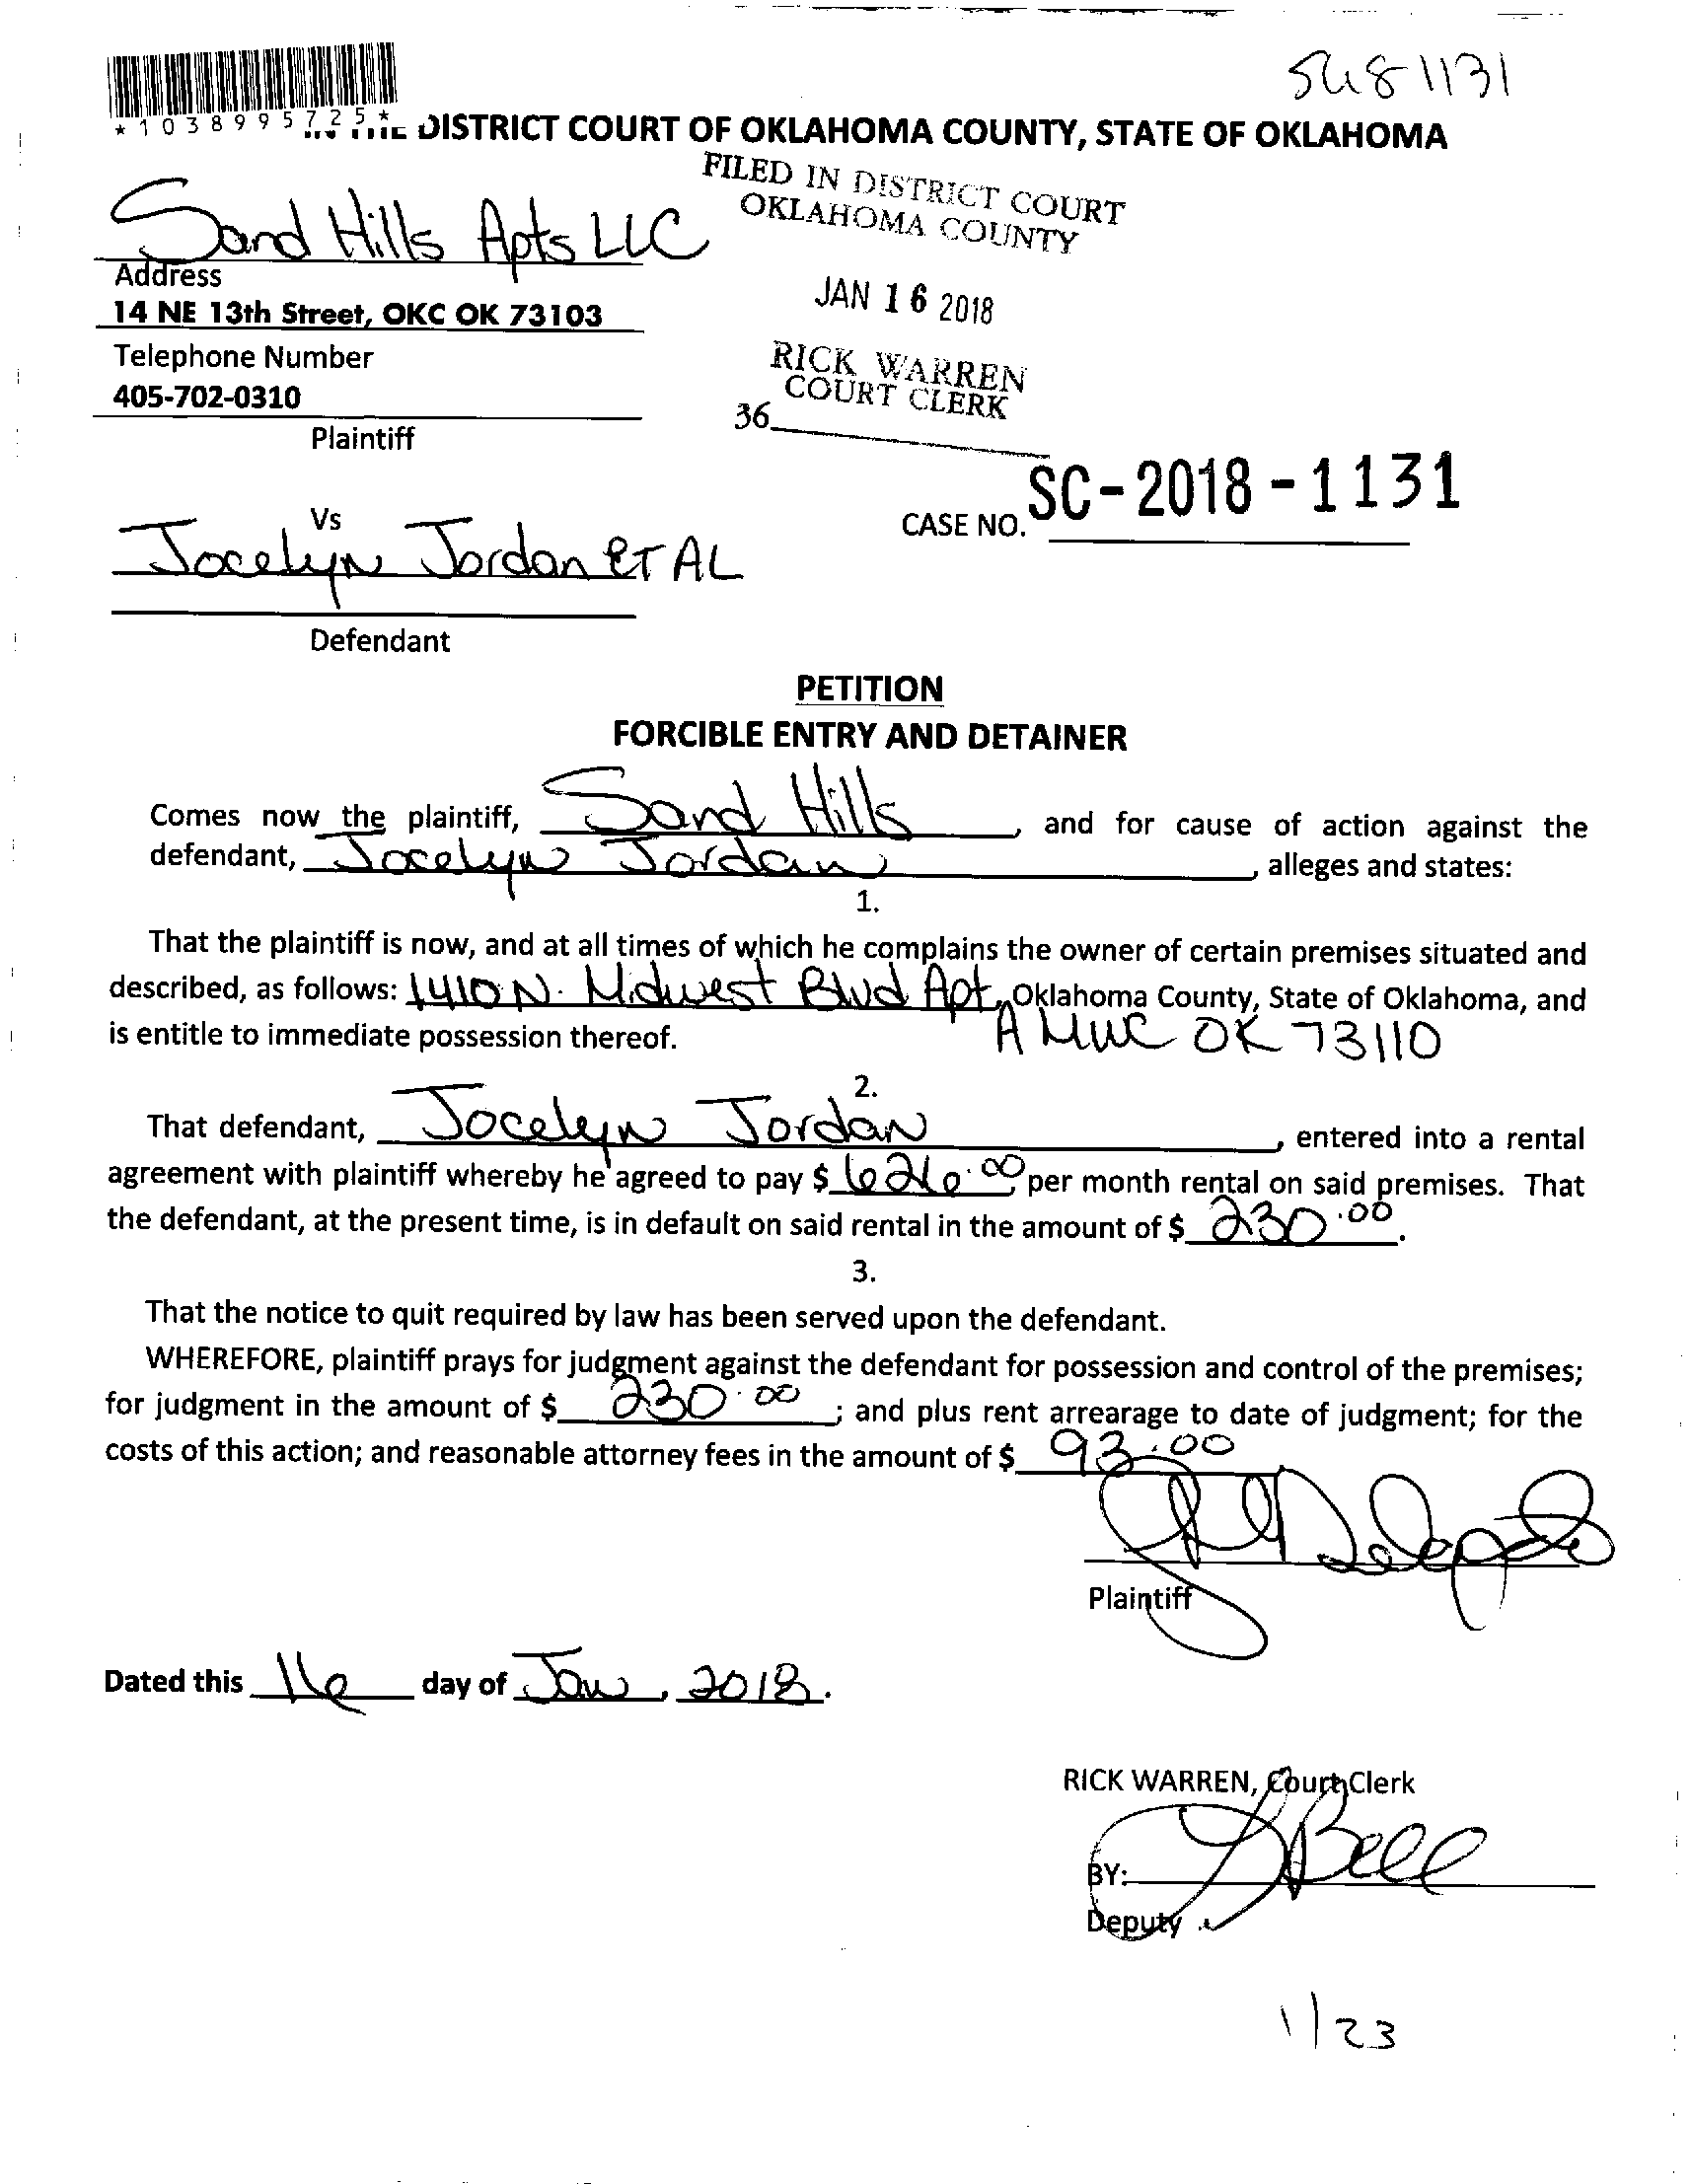 SC181131
*1038995725*
IN THE DISTRICT COURT OF OKLAHOMA COUNTY, STATE OF OKLAHOMA
FILED IN DISTRICT COURT
OKLAHOMA COUNTY
Sand Hills Apts LLC
Address
14 NE 13th Street, OKC OK 73103
JAN 16 2018
Telephone Number
405-702-0310
RICK WARREN
COURT CLERK
36
Plaintiff
Vs
CASE NO. SC-2018-1131
Jocelyn Jordan ET AL
Defendant
PETITION
FORCIBLE ENTRY AND DETAINER
Comes now the plaintiff, Sand Hills, and for cause of action against the
defendant, Jocelyn Jordan, alleges and states:
1.
That the plaintiff is now, and at all times of which he complains the owner of certain premises situated and
described, as follows: 1410 N. Midwest Blvd Apt, Oklahoma County, State of Oklahoma, and
A MWC OK 73110
is entitle to immediate possession thereof.
2.
That defendant, Jocelyn Jordan, entered into a rental
agreement with plaintiff whereby he agreed to pay $ 626.00 per month rental on said premises. That
the defendant, at the present time, is in default on said rental in the amount of $ 230.00.
3.
That the notice to quit required by law has been served upon the defendant.
WHEREFORE, plaintiff prays for judgment against the defendant for possession and control of the premises;
for judgment in the amount of $ 230.00; and plus rent arrearage to date of judgment; for the
costs of this action; and reasonable attorney fees in the amount of $ 93.00
Plaintiff
Dated this 16 day of Jan, 2018.
RICK WARREN, Court Clerk
BY: Bell
Deputy
1/23